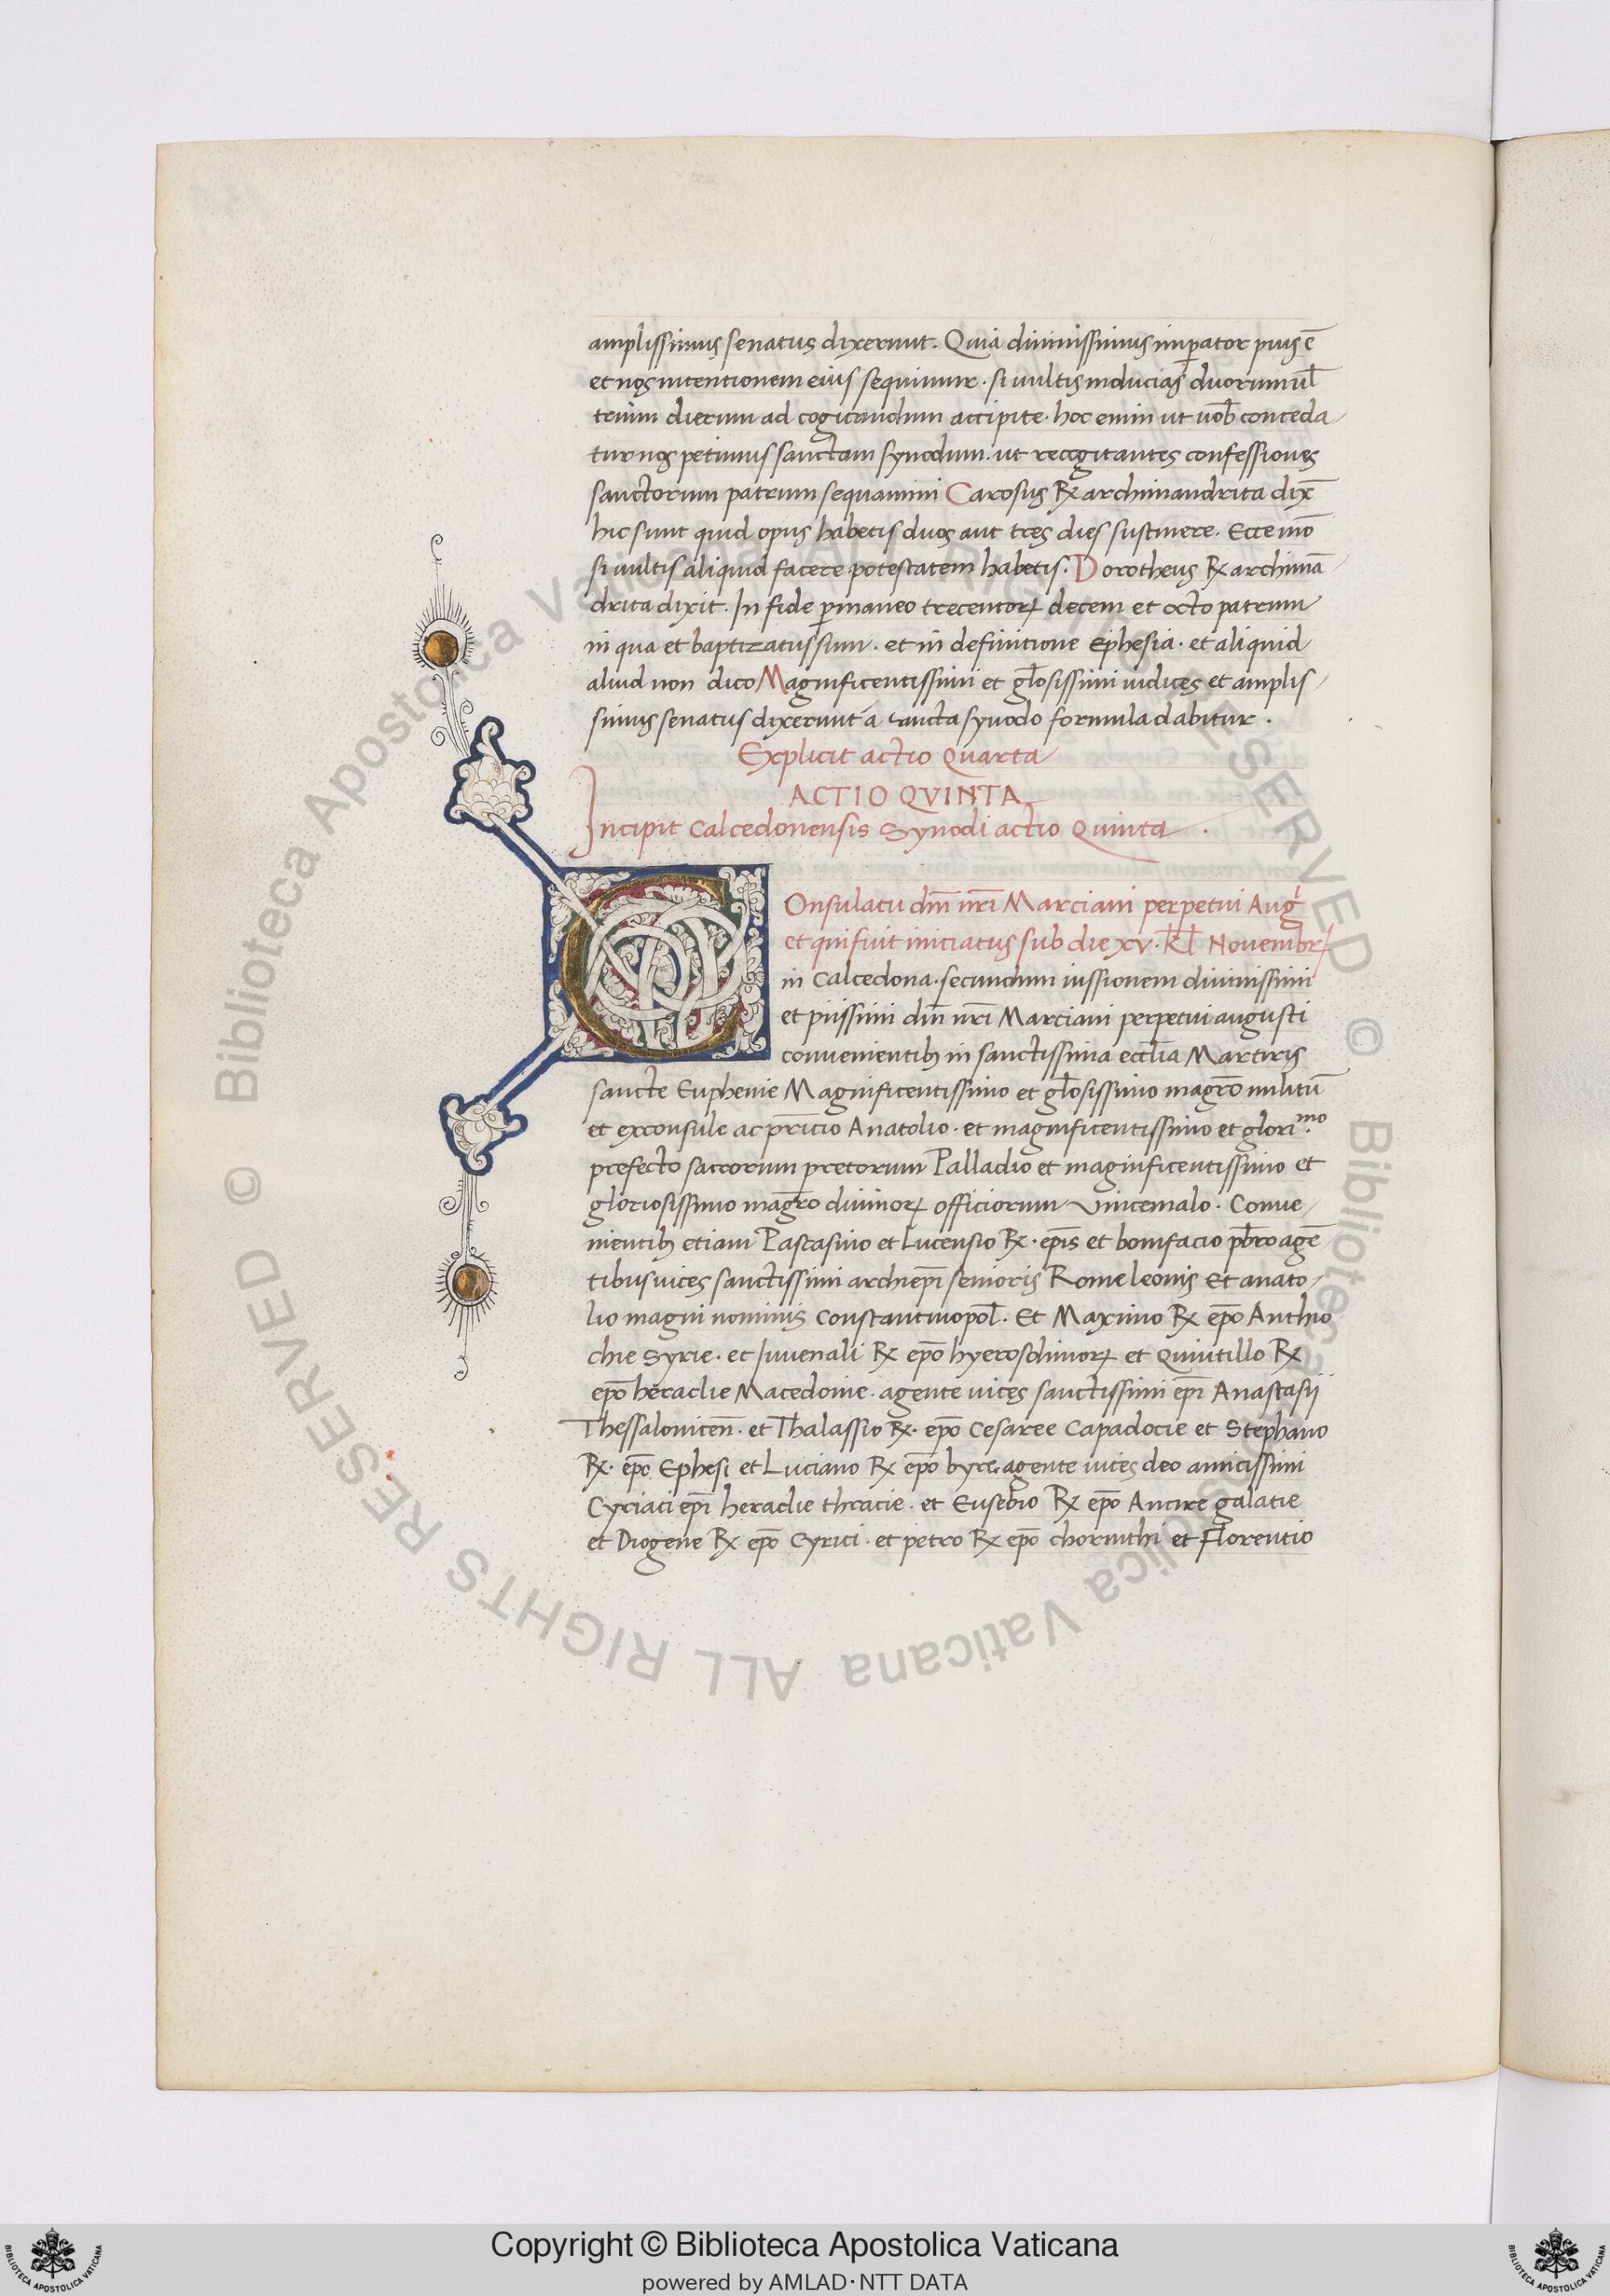 amplissimus senatus dixerunt. Quia diuinissimus imp̲ator pius ē
et nos intentionem eius sequimur. si uultis inducias duorum ul̄
trium dierum ad cogitandum accipite. hoc enim ut uob̄ conceda-
tur nos petimus sanctam synodum. ut recogitantes confessiones
sanctorum patrum sequamini Carosus Rx archimandrita dix̄
hic sunt quid opus habetis duos aut tres dies sustinere. Ecce mō
si uultis aliquid facere potestatem habetis. Dorotheus Rx archimā-
drita dixit. In fide p̲maneo trecentoꝝ decem et octo patrum
in qua et baptizatus sum. et in definitione Ephesia. et aliquid
aliud non dico Magnificentissimi et gl̄osissimi iudices et amplis-
simus senatus dixerunt a sancta synodo formula dabitur.
Explicit actio Quarta
ACTIO QVINTA
Incipit Calcedonensis Synodi actio Quinta.
COnsulatu dn̄i nr̄i Marciani perpetui Aug
et qui fuit iniciatus sub die xv. kl̄ Nouembr
in Calcedona. secundum iussionem diuinissimi
et piissimi dn̄i nr̄i Marciani perpetui augusti
conuenientibꝫ in sanctissima eccl̄ia Martiris
sancte Euphenie Magnificentissimo et gl̄osissimo magr̄o militū
et exconsule ac pr̄icio Anatolio. et magnificentissimo et glori.mo
prefecto sacrorum pretorum Palladio et maginficentissimo et
gloriosissimo magr̄o diuinoꝝ officiorum Vincemalo. Conue-
nientibꝫ etiam Pascasino et Lucensio Rx. ep̄is et bonifacio pb̄ro agē-
tibus uices sanctissimi archiep̄i senioris Rome leonis Et anato-
lio magni nominis Constantinopol̄. Et Maximo Rx ep̄o Anthio
chie Syrie. et Iuuenali Rx ep̄o hyerosolimoꝝ et Quintillo Rx
ep̄o heraclie Macedonie. agente uices sanctissimi ep̄i Anastasij
Thessalonicen̄. et Thalassio Rx. ep̄o Cesaree Capadocie et Stephano
Rx. ep̄o Ephesi et Luciano Rx ep̄o byce. agente uices deo amicissimi
Cyriaci ep̄i heraclie thracie. et Eusebio Rx ep̄o Ancire galatie
et Diogene Rx ep̄o Cyrici. et petro Rx ep̄o chorinthi et Florentio
© Biblioteca Apostolica Vaticana ALL RIGHTS RESERVED
© Biblioteca Apostolica Vaticana ALL RIGHTS RESERVED
Copyright © Biblioteca Apostolica Vaticana
powered by AMLAD·NTT DATA
BIBLIOTECA APOSTOLICA VATICANA
BIBLIOTECA APOSTOLICA VATICANA